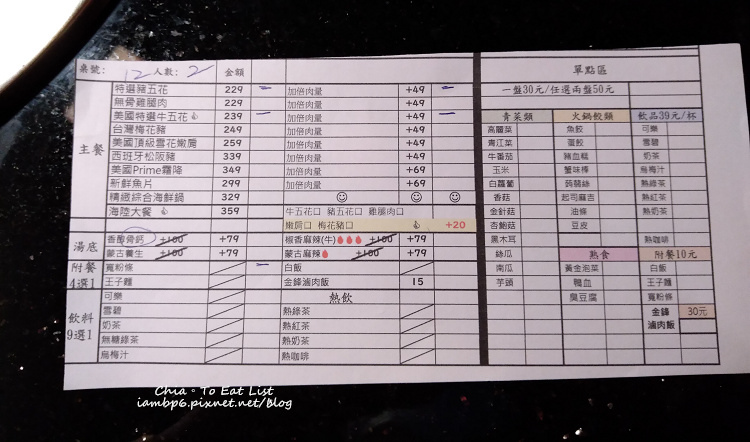 桌號: 12 人數: 2 金額 單點區
特選豬五花 229 一 加倍肉量 +49 一 一盤30元/任選兩盤50元
無骨雞腿肉 229 加倍肉量 +49
美國特選牛五花 239 一 加倍肉量 +49 一 青菜類 火鍋餃類 飲品39元/杯
主餐 台灣梅花豬 249 加倍肉量 +49 高麗菜 魚餃 可樂
美國頂級雪花嫩肩 259 加倍肉量 +49 青江菜 蛋餃 雪碧
西班牙松阪豬 339 加倍肉量 +49 牛番茄 豬血糕 奶茶
美國Prime霜降 349 加倍肉量 +69 玉米 蟹味棒 烏梅汁
新鮮魚片 299 加倍肉量 +69 白蘿蔔 蒟蒻絲 熱綠茶
精緻綜合海鮮鍋 329 香菇 起司烏吉 熱紅茶
海陸大餐 359 牛五花口 豬五花口 雞腿肉口 金針菇 油條 熱奶茶
嫩肩口 梅花豬口 +20 杏鮑菇 豆皮
湯底 香醇骨鈣 +100 +79 椒香麻辣(牛) +100 +79 黑木耳 熱咖啡
蒙古養生 +100 +79 蒙古麻辣 +100 +79 絲瓜 熟食 附餐10元
附餐 寬粉條 一 白飯 南瓜 黃金泡菜 白飯
4選1 王子麵 金鋒滷肉飯 15 芋頭 鴨血 王子麵
可樂 熱飲 臭豆腐 寬粉條
飲料 雪碧 熱綠茶 金鋒 30元
9選1 奶茶 熱紅茶 滷肉飯
無糖綠茶 熱奶茶
烏梅汁 熱咖啡
Chia。To Eat List
iambp6.pixnet.net/blog